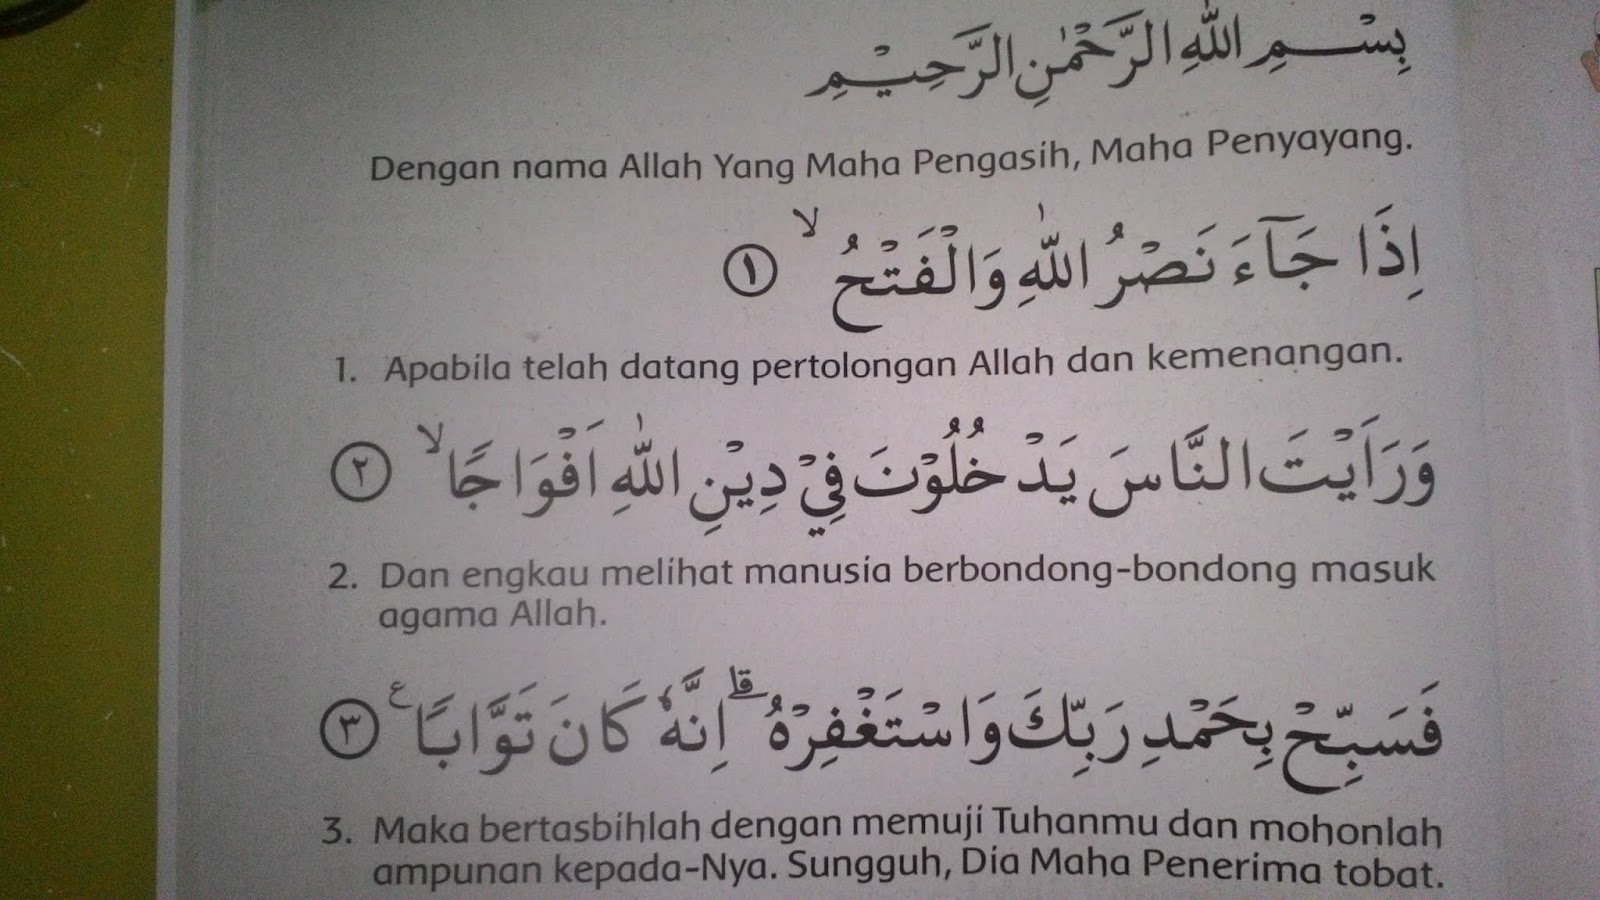 بِسْــــمِ اللّٰهِ الرَّحْمٰنِ الرَّحِيْمِ
Dengan nama Allah Yang Maha Pengasih, Maha Penyayang.
اِذَا جَآءَ نَصْرُ اللّٰهِ وَالْفَتْحُۙ ١
1. Apabila telah datang pertolongan Allah dan kemenangan.
وَرَاَيْتَ النَّاسَ يَدْخُلُوْنَ فِيْ دِيْنِ اللّٰهِ اَفْوَاجًاۙ ٢
2. Dan engkau melihat manusia berbondong-bondong masuk
agama Allah.
فَسَبِّحْ بِحَمْدِ رَبِّكَ وَاسْتَغْفِرْهُۗ اِنَّهٗ كَانَ تَوَّابًا ع ٣
3. Maka bertasbihlah dengan memuji Tuhanmu dan mohonlah
ampunan kepada-Nya. Sungguh, Dia Maha Penerima tobat.